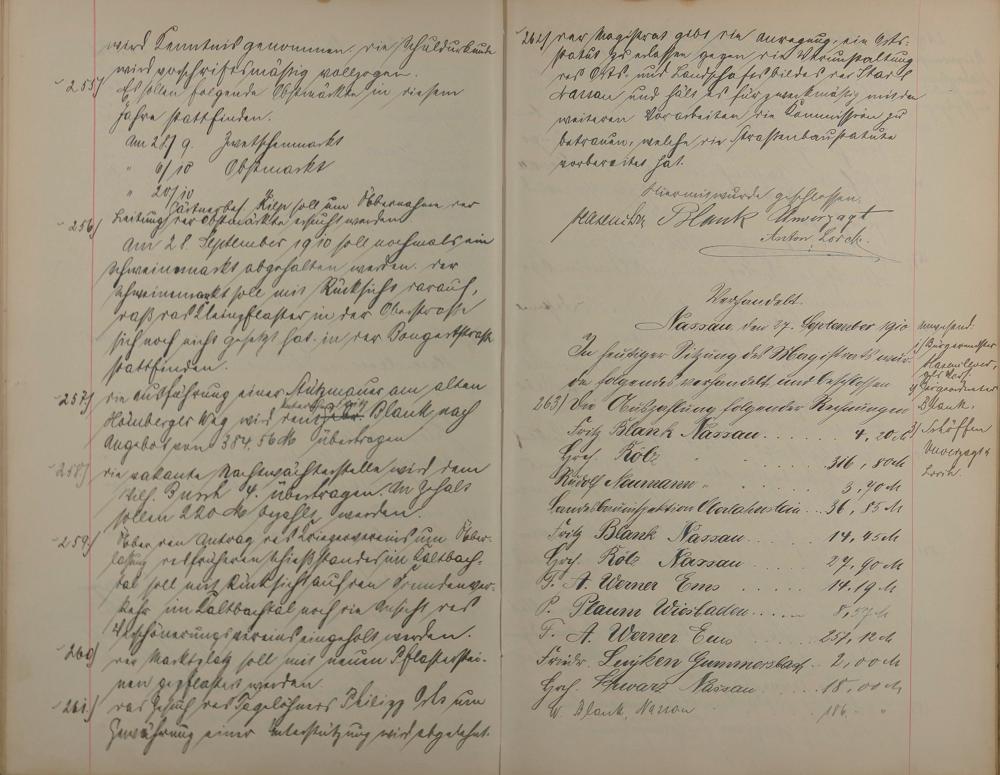 wird Kenntnis genommen. die Schuldurkunde
wird vorschriftsmäßig vollzogen.
255/ Es sollen folgende Obstmärkte in diesem
Jahre stattfinden.
Am 21/9. Zwetschenmarkt
" 6/10 Obstmarkt
" 20/10
256/ Gärtnereibes. Hilge soll um Übernahme der
Leitung der Obstmärkte ersucht werden
Am 28 September 1910 soll nochmals ein
Schweinemarkt abgehalten werden. der
Schweinemarkt soll mit Rücksicht darauf,
daß das Kleinpflaster in der Oberstraße
sich noch nicht gesetzt hat, in der Bongertstraße
stattfinden.
257/ die Ausführung einer Stützmauer am alten
Hömberger Weg wird dem Blank nach
Angebot von 384,56 M übertragen
258/ die vakante Nachtwächterstelle wird dem
Wilh. Busch 4. übertragen. An Gehalt
sollen 220 M bezahlt werden.
259/ Über den Antrag des Kriegervereins um Über-
lassung des früheren Schießstandes im Kaltbach-
tal soll mit Rücksicht auf den Fremdenver-
kehr im Kaltbachtal noch die Ansicht des
Verschönerungsvereins eingeholt werden.
260/ der Marktplatz soll mit neuen Pflasterstei-
nen gepflastert werden
261/ das Gesuch des Tagelöhners Philipp um
Gewährung einer Unterstützung wird abgelehnt.
262/ der Magistrat gibt die Anregung, ein Orts-
statut zu erlassen gegen die Verunstaltung
des Orts- und Landschaftsbildes der Stadt
Nassau und hält es für zweckmäßig mit den
weiteren Vorarbeiten die Kommission zu
betrauen, welche die Straßenbaustatute
vorbereitet hat.
Hiermit wurde geschlossen.
Blank Unverzagt
Anton Lorch.
Verhandelt.
Nassau, den 27. September 1910
In heutiger Sitzung des Magistrats wur-
de folgendes verhandelt und beschlossen
263/ Die Auszahlung folgender Rechnungen
Fritz Blank Nassau..... 4,20 M
Hch. Kölz " ..... 316,80 M
Rudolf Naumann " ..... 3,70 M
Landesbauinspektion Oberlahnstein.. 36,85 M
Fritz Blank Nassau..... 14,45 M
Hch. Kölz Nassau..... 27,90 M
F. A. Werner Ems..... 14.19 M
P. Plaum Wiesbaden..... 8,57 M
F. A. Werner Ems..... 257,12 M
Friedr. Luyken Gummersbach.. 2,00 M
Hch. Schwarz Nassau..... 18,00 M
W. Blank, Nassau 186. - "
Anwesend:
1/ Bürgermeister
2/ Beigeordneter
Blank.
3/ Schöffen
Unverzagt
Lorch